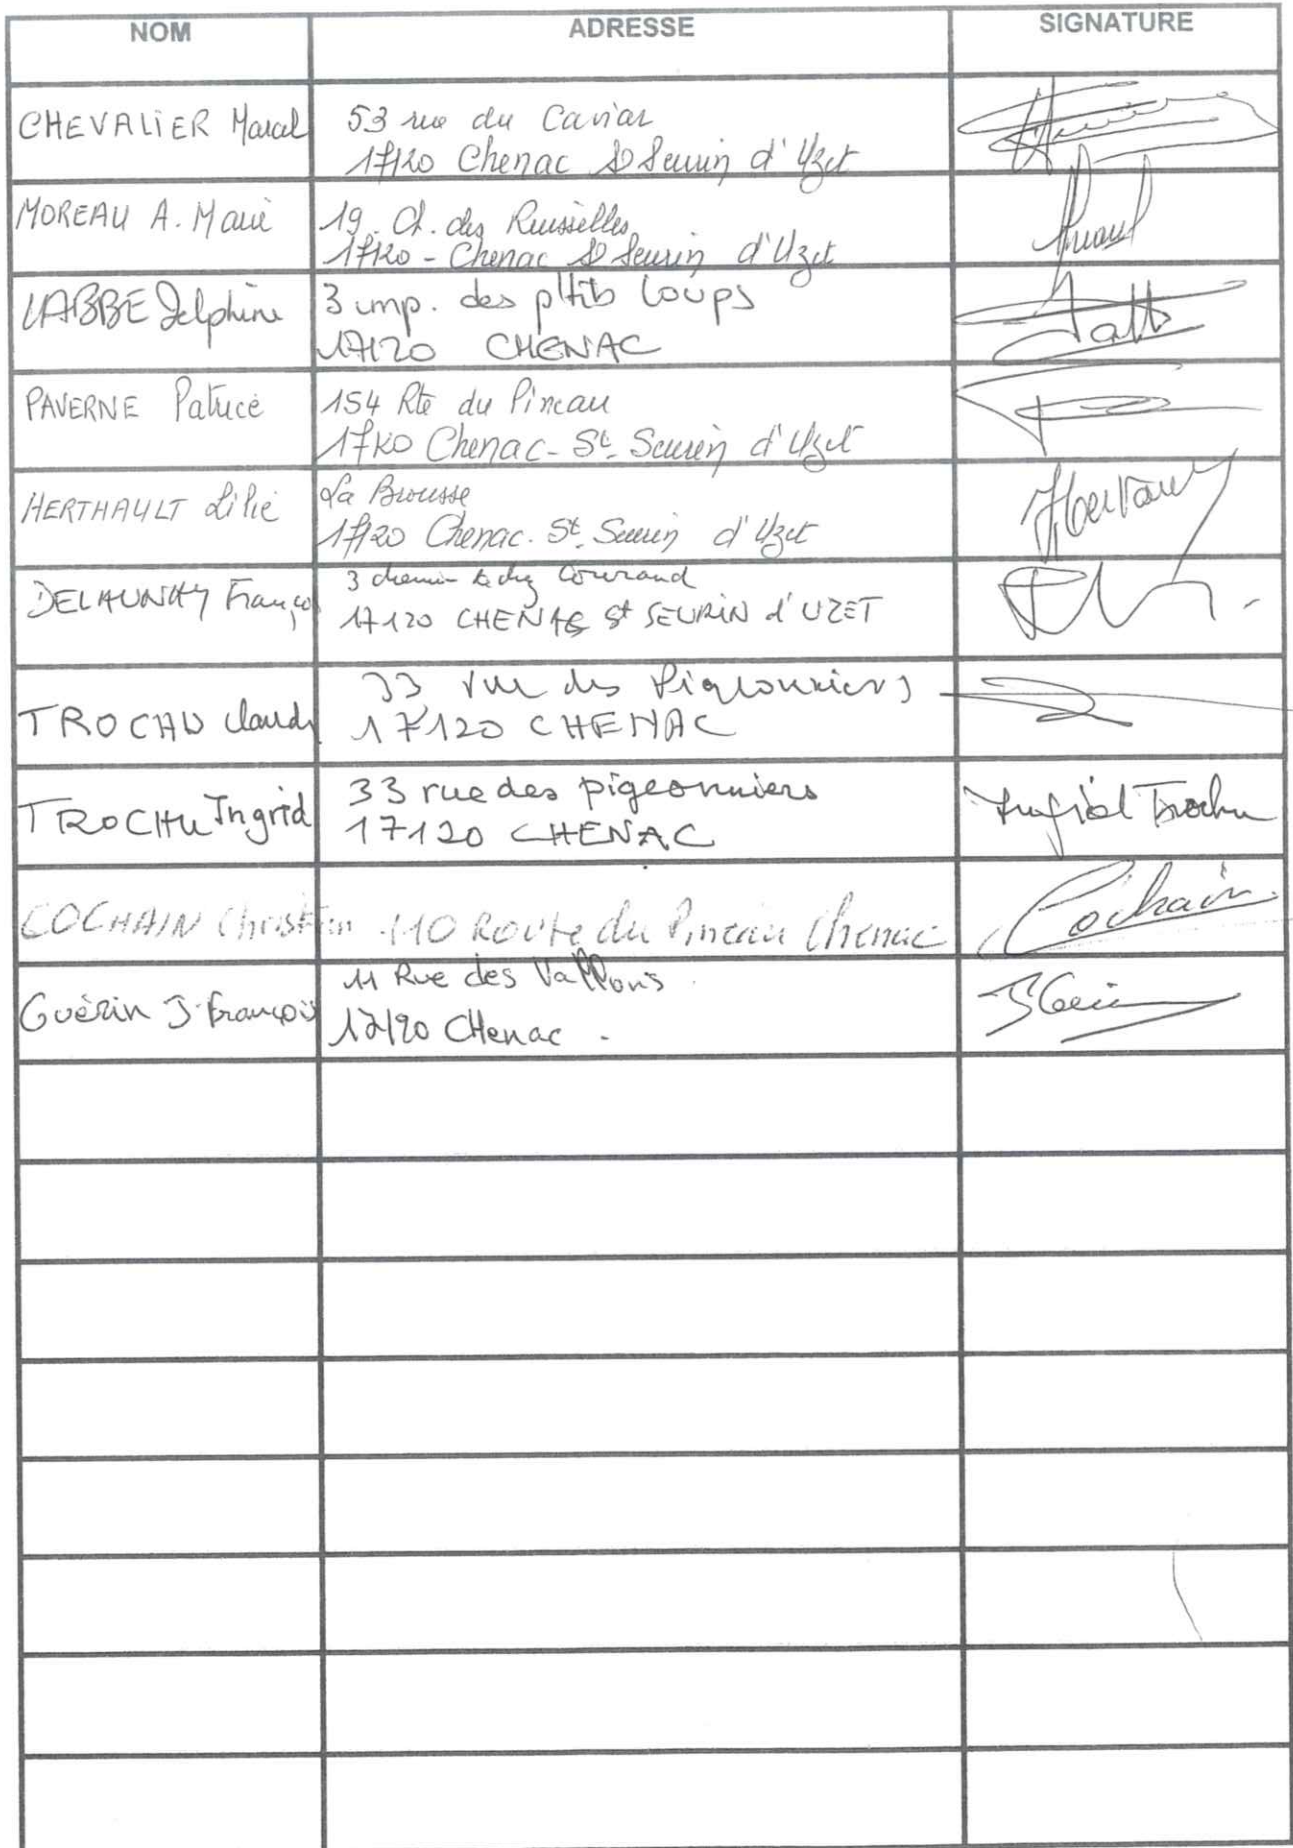 NOM ADRESSE SIGNATURE
CHEVALIER Marcel 53 rue du Caviar
17120 Chenac St Seurin d'Uzet
MOREAU A. Marie 19. Ch. des Russielles
17120 - Chenac St Seurin d'Uzet
LABBE Delphine 3 imp. des p'tits loups
17120 CHENAC
PAVERNE Patrice 154 Rte du Pineau
17120 Chenac - St Seurin d'Uzet
HERTHAULT Lilie La Brousse
17120 Chenac. St. Seurin d'Uzet
DELAUNAY Franço 3 chemin
17120 CHENAC St SEURIN d'UZET
TROCHU Claudy 33 rue des Pigeonniers
17120 CHENAC
TROCHU Ingrid 33 rue des pigeonniers Ingrid Trochu
17120 CHENAC
COCHAIN Christian 110 Route du Pineau Chenac Cochain
Guèrin J-François 11 Rue des Vallons
17120 CHenac.